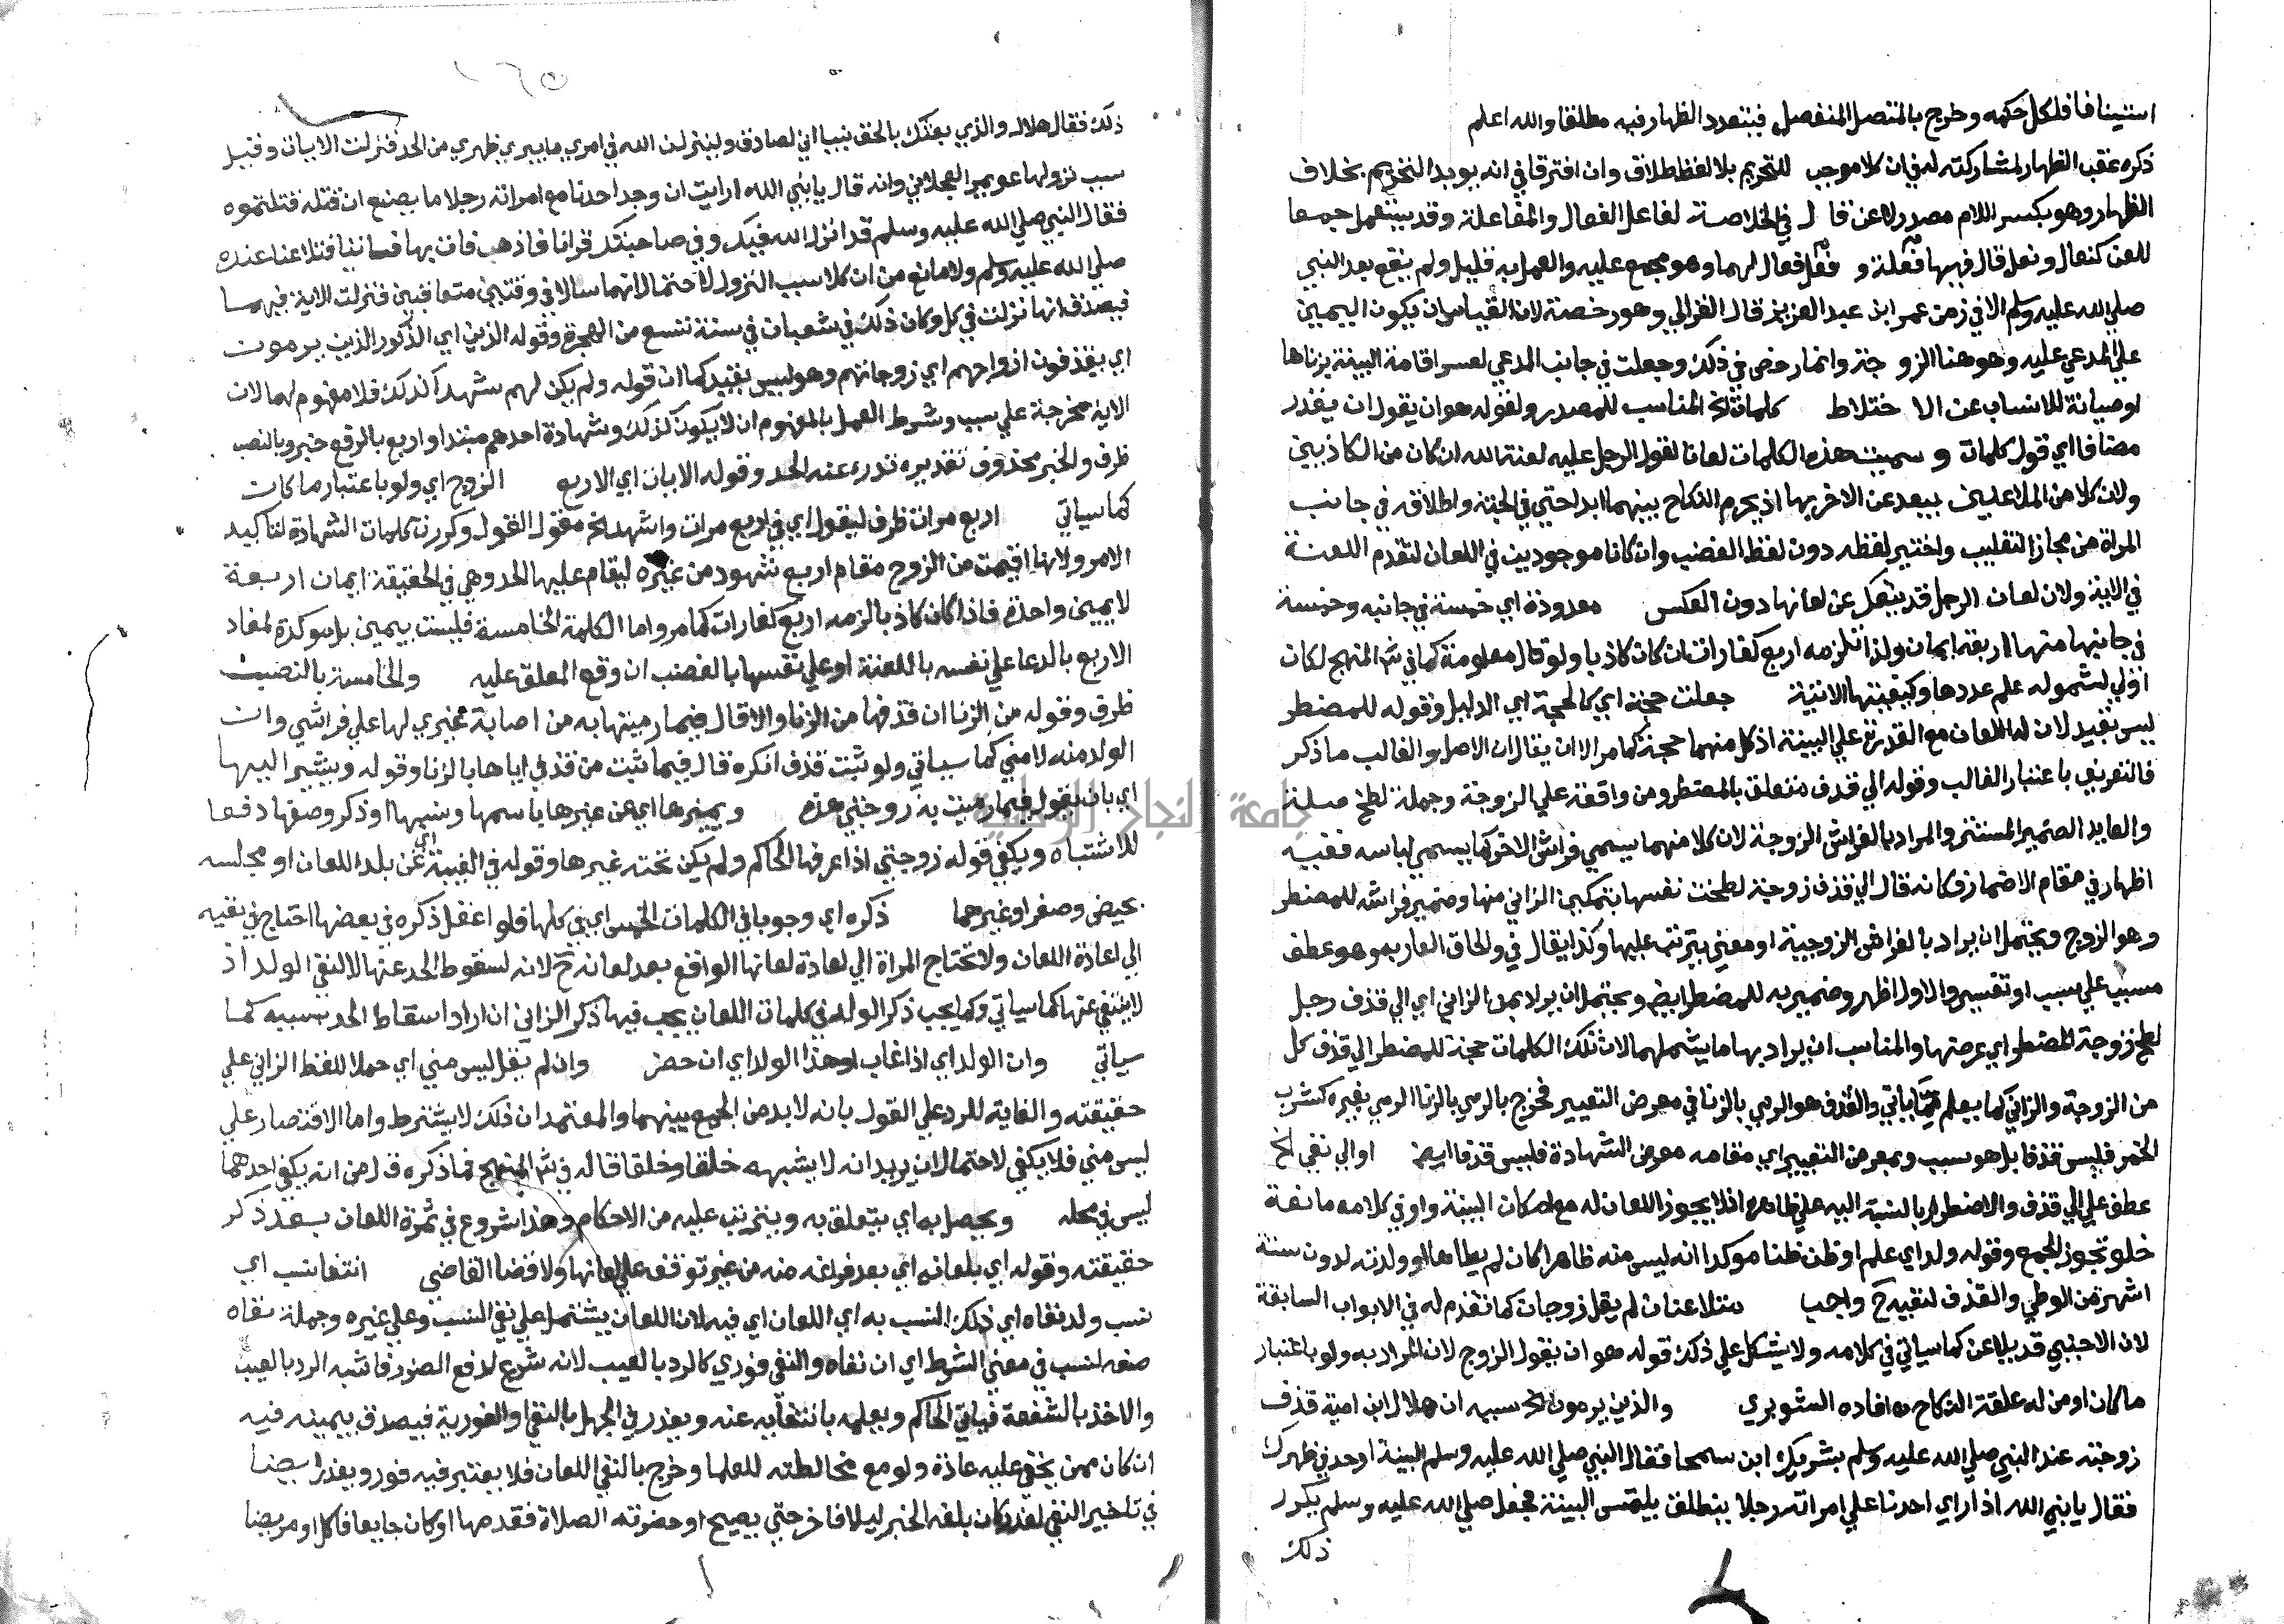 استينافا فلكل حكمه وخرج بالمتصل المنفصل فيتعدد الظهار فيه مطلقا والله اعلم
ذكره عقب الظهار لمشاركته له في ان كلا موجب للتحريم بلا لفظ طلاق وان افترقا في انه يوبد التحريم بخلاف
الظهار وهو بكسر اللام مصدر لاعن قال في الخلاصة لفاعل الفعال والمفاعلة وقد يستعمل جمعا
للعن كنعال ونعل قال فيها فعلة وفعل فعال لهما وهو مجمع عليه والعمل به قليل ولم يقع بعد النبي
صلي الله عليه وسلم الا في زمن عمر ابن عبد العزيز قال الغزالي وهو رخصة لان القياس ان يكون اليمين
علي المدعي عليه وهو هنا الزوجة وانما رخص في ذلك وجعلت في جانب المدعي لعسر اقامة البينة بزناها
او صيانة للانساب عن الاختلاط كلمات الخ المناسب للمصدر ولقوله هو ان يقول ان يقدر
مضافا اي قول كلمات وسميت هذه الكلمات لعانا لقول الرجل عليه لعنة الله ان كان من الكاذبين
ولان كلا من المتلاعنين يبعد عن الاخر بها اذ يحرم النكاح بينهما ابدا حتي في الجنة واطلاقه في جانب
المراة من مجاز التغليب واختير لفظه دون لفظ الغضب وان كانا موجودين في اللعان لتقدم اللعنة
في الاية ولان لعان الرجل قد ينفك عن لعانها دون العكس معدودة اي خمسة في جانبه وخمسة
في جانبها منها اربعة ايمان ولذا تلزمه اربع كفارات ان كان كاذبا ولو قال معلومة كما في شم المنهج لكان
اولي لشموله علم عددها وكيفيتها الاتية جعلت حجة اي كالحجة اي الدليل وقوله للمضطر
ليس بقيد لان له اللعان مع القدرة علي البينة اذ كل منهما حجة كما مر الا ان يقال ان الاصل والغالب ما ذكر
فالتعريف باعتبار الغالب وقوله الي قذف متعلق بالمضطر ومن واقعة علي الزوجة وجملة لطخ صلة
والعايد الضمير المستتر والمراد بالفراش الزوجة لان كلا منهما يسمي فراش الاخر كما يسمي لباسه ففيه
اظهار في مقام الاضمار فكانه قال الي قذف زوجة لطخت نفسها بتمكين الزاني منها وضمير فراشه للمضطر
وهو الزوج ويحتمل ان يراد بالفراش الزوجية او معني يترتب عليها وكذا يقال في والحاق العار به وهو عطف
مسبب علي سبب او تفسير والاول اظهر وضمير به للمضطر ايضا ويحتمل ان يراد بمن الزاني اي الي قذف رجل
لطخ زوجة المضطر اي عرضها والمناسب ان يراد بها ما يشملهما لان تلك الكلمات حجة للمضطر الي قذف كل
من الزوجة والزاني كما يعلم مما ياتي والقذف هو الرمي بالزنا في معرض التعيير فخرج بالرمي بالزنا الرمي بغيره كشرب
الخمر فليس قذفا بل هو سبب وبمعرض التعيير اي مقامه معرض الشهادة فليس قذفا ايضا او الي نفي الخ
عطف علي الي قذف والاضطرار بالنسبة اليه علي ظاهره اذ لا يجوز اللعان له مع امكان البينة واو في كلامه مانعة
خلو تجوز الجمع وقوله ولد اي علم او ظن ظنا موكدا انه ليس منه ظاهرا كان لم يطاها او ولدته لدون ستة
اشهر من الوطي والقذف لنفيه ح واجب متلاعنان لم يقل زوجات كما تقدم له في الابواب السابقة
لان الاجنبي قد يلاعن كما سياتي في كلامه ولا يشكل علي ذلك قوله هو ان يقول الزوج لان المراد به ولو باعتبار
ما كان او من له علقة النكاح افاده الشوبري والذين يرمون الخ سببه ان هلال ابن امية قذف
زوجته عند النبي صلي الله عليه وسلم بشريك ابن سمحا فقال النبي صلي الله عليه وسلم البينة او حد في ظهرك
فقال يا نبي الله اذا راي احدنا علي امراته رجلا ينطلق يلتمس البينة فجعل صلي الله عليه وسلم يكرر
ذلك
ذلك فقال هلال والذي بعثك بالحق نبيا اني لصادق ولينزلن الله في امري ما يبري ظهري من الحد فنزلت الايات وقيل
سبب نزولها عويمر العجلاني وانه قال يا نبي الله ارايت ان وجد احدنا مع امراته رجلا ما يصنع ان قتله قتلتموه
فقال النبي صلي الله عليه وسلم قد انزل الله فيك وفي صاحبتك قرانا فاذهب فات بها فسالنا فتلاعنا عنده
صلي الله عليه وسلم ولا مانع من ان كلا سبب النزول لاحتمال انهما سالا في وقتين متعاقبين فنزلت الاية فيهما
فيصدق انها نزلت في كل وكان ذلك في شعبان في سنة تسع من الهجرة وقوله الذين اي الذكور الذين يرمون
اي يقذفون ازواجهم اي زوجاتهم وهو ليس بقيد كما ان قوله ولم يكن لهم شهدا كذلك فلا مفهوم لهما لان
الاية مخرجة علي سبب وشرط العمل بالمفهوم ان لا يكون كذلك وشهادة احدهم مبتدا واربع بالرفع خبر وبالنصب
ظرف والخبر محذوف تقديره تدرء عنه الحد وقوله الايات اي الاربع الزوج اي ولو باعتبار ما كان
كما سياتي اربع مرات ظرف ليقول اي في اربع مرات واشهد الخ مقول القول وكررت كلمات الشهادة لتاكيد
الامر ولانها اقيمت من الزوج مقام اربع شهود من غيره ليقام عليها الحد وهي في الحقيقة ايمان اربعة
لا يمين واحدة فاذا كان كاذبا لزمه اربع كفارات كما مر واما الكلمة الخامسة فليست بيمين بل موكدة لمفاد
الاربع بالدعا علي نفسه باللعنة او علي نفسها بالغضب ان وقع المعلق عليه والخامسة بالنصب
ظرف وقوله من الزنا ان قذفها من الزنا والا قال فيما رميتها به من اصابة غيري لها علي فراشي وان
الولد منه لا مني كما سياتي ولو ثبت قذف انكره قال فيما ثبت من قذفي اياها بالزنا وقوله ويشير اليها
اي بان يقول فيما رميت به زوجتي هذه ويميزها اي عن غيرها باسمها ونسبها او ذكر وصفها دفعا
للاشتباه ويكفي قوله زوجتي اذا عرفها الحاكم ولم يكن تحته غيرها وقوله في الغيبة اي عن بلد اللعان او مجلسه
بحيض وصغر او غيرهما ذكره اي وجوبا في الكلمات الخمس اي في كلها فلو اغفل ذكره في بعضها احتاج في نفيه
الي اعادة اللعان ولا تحتاج المراة الي اعادة لعانها الواقع بعد لعانه ح لانه لسقوط الحد عنها لا لنفي الولد اذ
لا ينتفي عنها كما سياتي وكما يجب ذكر الولد في كلمات اللعان يجب فيها ذكر الزاني ان اراد اسقاط الحد بسببه كما
سياتي وان الولد اي اذا غاب او هذا الولد اي ان حضر وان لم يقل ليس مني اي حملا للفظ الزاني علي
حقيقته والغاية للرد علي القول بانه لا بد من الجمع بينهما والمعتمد ان ذلك لا يشترط واما الاقتصار علي
ليس مني فلا يكفي لاحتمال ان يريد انه لا يشبهه خلقا وخلقا قاله في شم المنهج فما ذكره ق ل من انه يكفي احدهما
ليس في محله ويحصل به اي يتعلق به ويترتب عليه من الاحكام وهذا شروع في ثمرة اللعان بعد ذكر
حقيقته وقوله اي بلعانه اي بعد فراغه منه من غير توقف علي لعانها ولا قضا القاضي انتفا نسب اي
نسب ولد نفاه اي ذلك النسب به اي اللعان اي فيه لان اللعان يشتمل علي نفي النسب وعلي غيره وجملة نفاه
صفة لنسب في معني الشرط اي ان نفاه والنفي فوري كالرد بالعيب لانه شرع لدفع الضرر فاشبه الرد بالعيب
والاخذ بالشفعة فياتي الحاكم ويعلمه بانتفائه عنه ويعذر في الجهل بالنفي او الفورية فيصدق بيمينه فيه
ان كان ممن يخفي عليه عادة ولو مع مخالطته للعلما وخرج بالنفي اللعان فلا يعتبر فيه فور ويعذر ايضا
في تاخير النفي لعذر كان بلغه الخبر ليلا فاخر حتي يصبح او حضرته الصلاة فقدمها او كان جايعا فاكل او مريضا